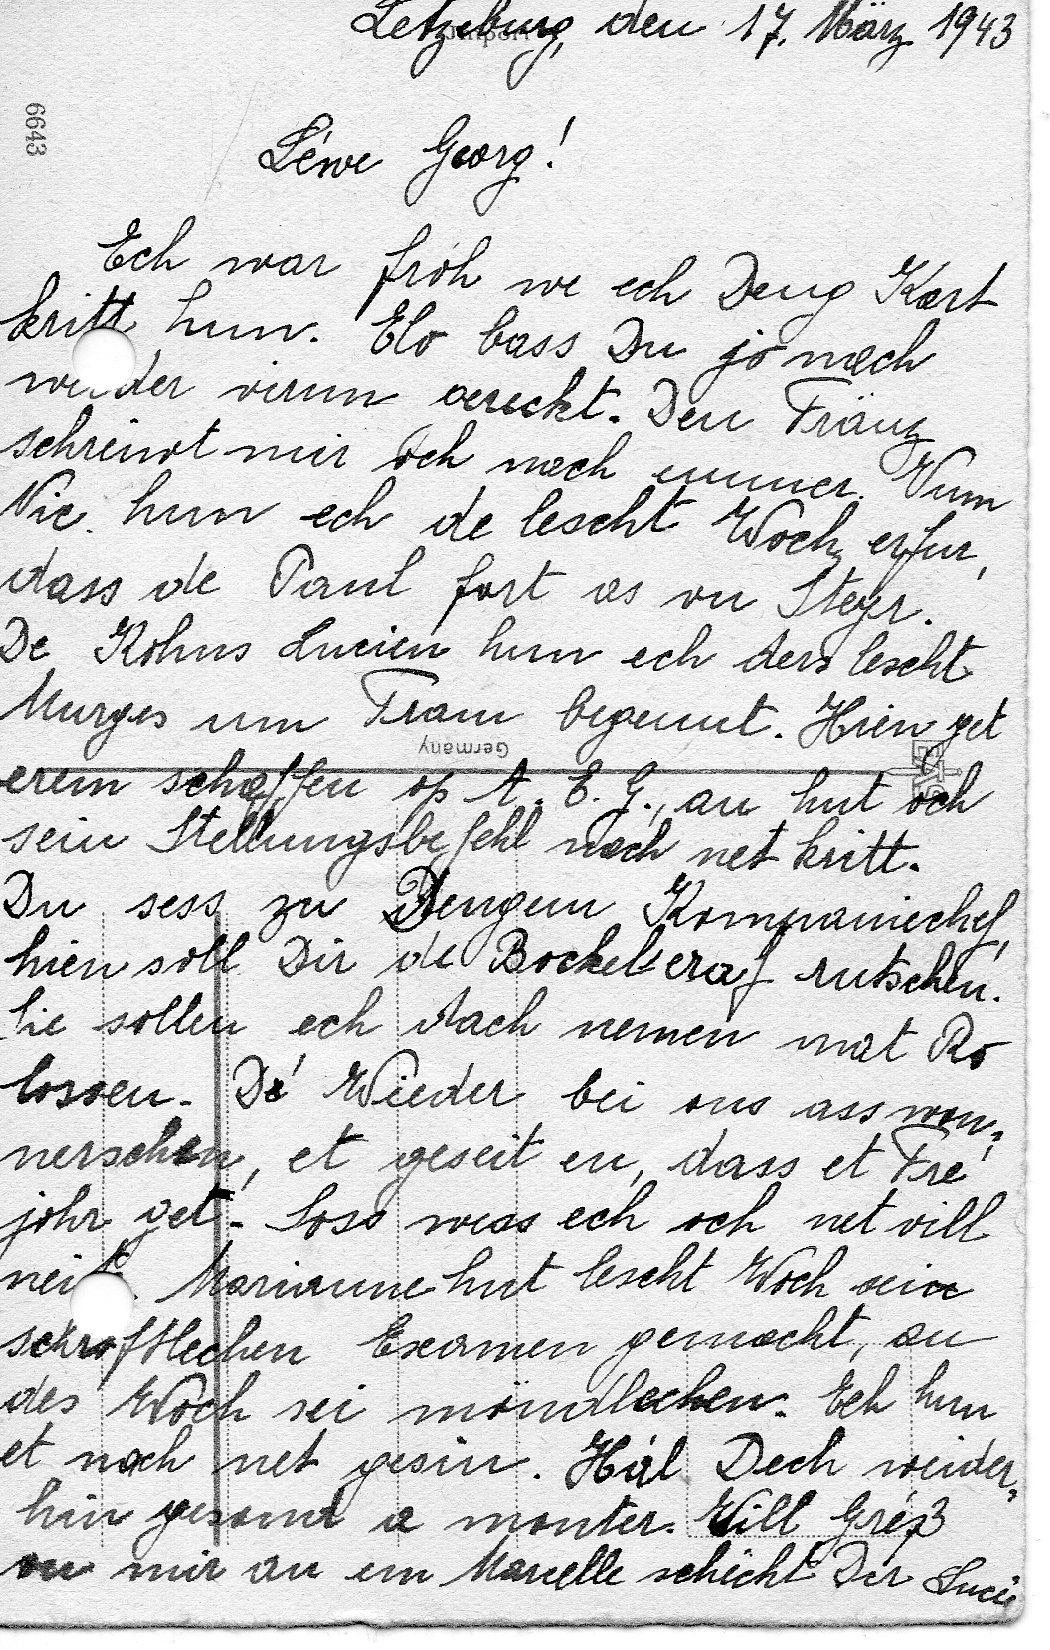 Letzeburg, den 17. März 1943
6643
Léwe Georg!
Ech war fróh we ech Deng Kært
kritt hun. Elo bass Du jo nach
weider virun gereckt. Den Fränz
schreiwt mir och nach ummer. Vum
Vic. hun ech de lescht Woch erfur,
dass de Paul fort as vu Steyr.
De Kohns Lucien hun ech ders lescht
Murges um Tram begennt. Hien get
Germany
erem schaffen op A. E. G., an hut och
sein Stellungsbefehl nach net kritt.
Du sess zu Dengem Kompaniechef,
hien soll Dir de Bockel eraf rutschen.
Sie sollen ech dach nemen mat Ro
lossen. Dé Wieder bei ons ass won-
nerschen, et geseit en, dass et Fré
johr get. Soss wess ech och net vill
Marianne hut lescht Woch sein
schroftlechen Examen gemacht, an
des Woch sei möndlechen. Ech hun
et nach net gesin. Hál Dech weider-
hin gesond a monter. Vill Gréß
vu mir an em Marcelle schécht Der Lucie